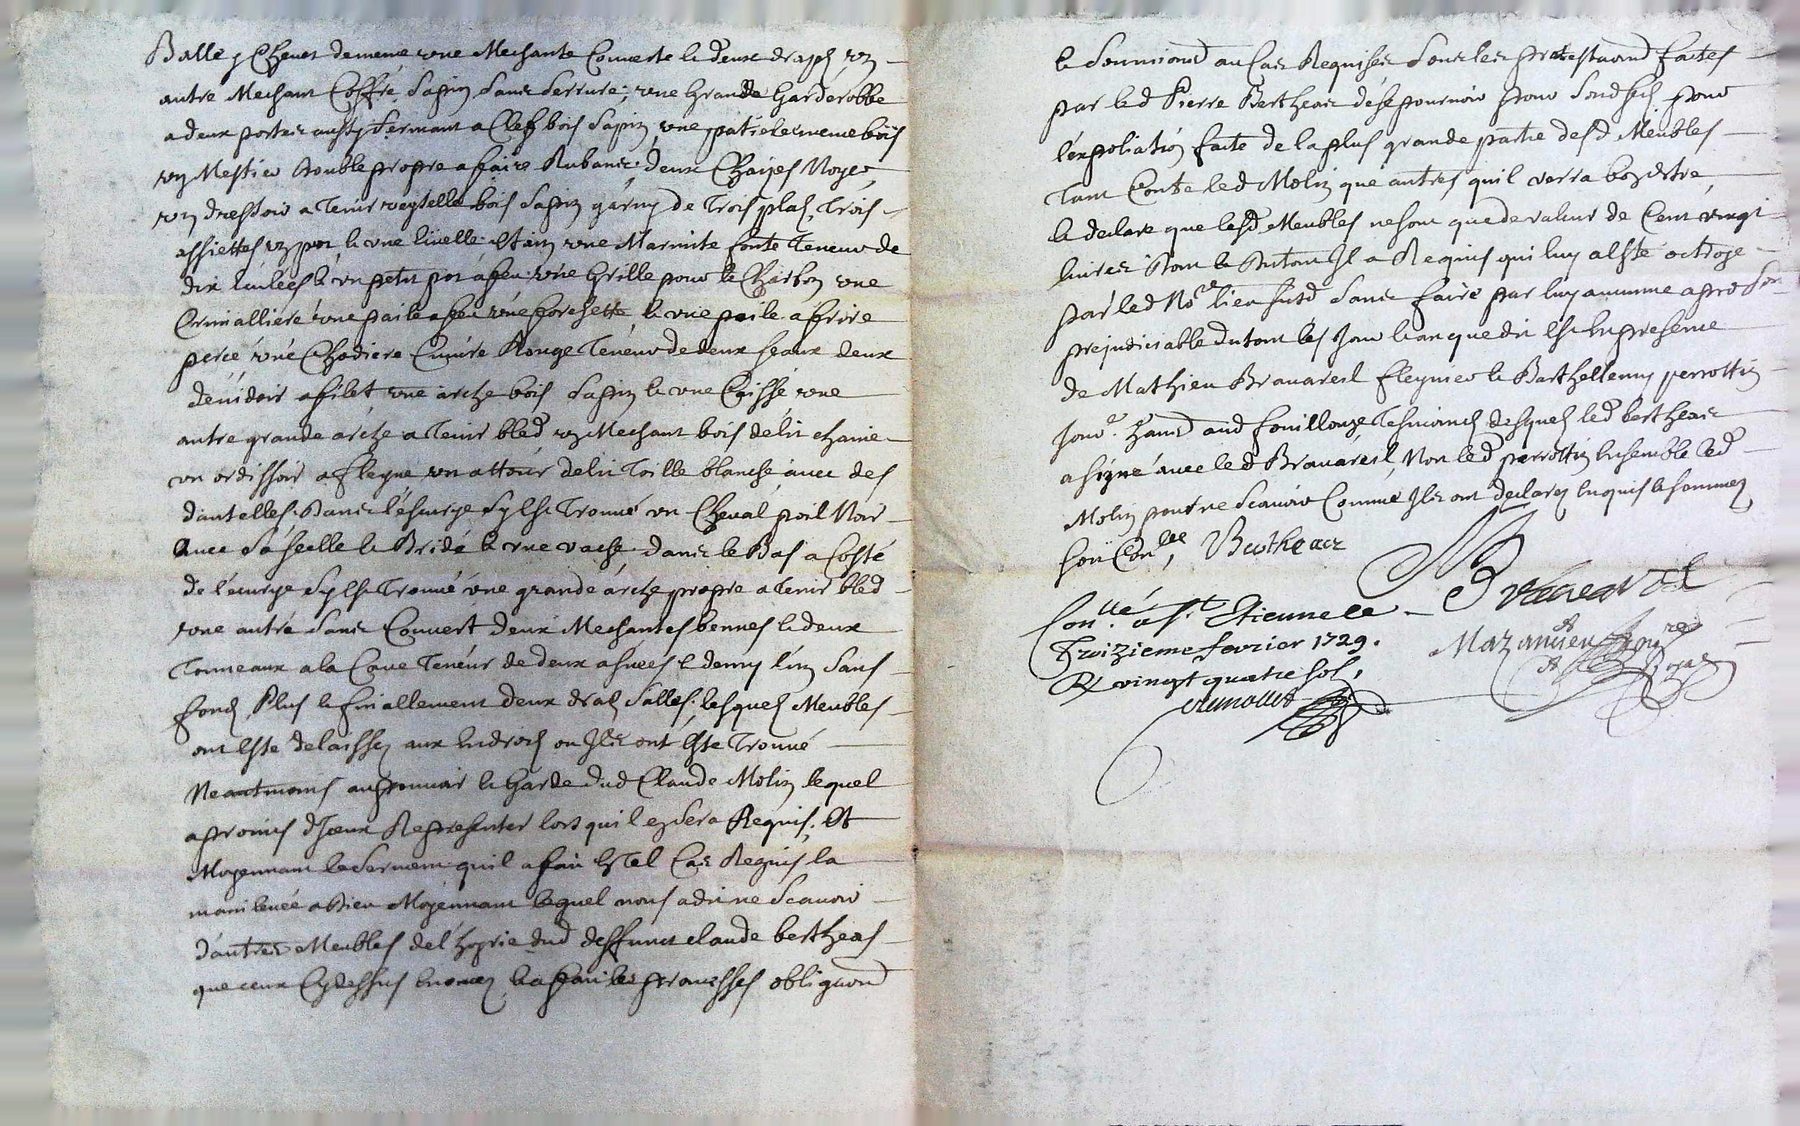 Balle & Chevet de meme une Mechante Couverte & deux draps, un
autre Mechant Coffre Sapin Sans Serrure, une Grande Garderobbe
a deux portes aussy fermant a Clef bois Sapin une patiele meme bois
un Mestier double propre a faire Rubans; deux Chaises Noyer,
un dressoir a tenir veyselle bois Sapin garny de Trois plas, Trois
assiettes un pot & une Eculle Estain une Marmite fonte Teneur de
dix Eculées & un petit pot a feu une Grille pour le Charbon une
Crimalliere une paile a feu une forchette & une paile a frire
percé une Chodiere Cuivre Rouge Teneur de deux seaux deux
devidoir a filet une arche bois Sapin & une Caisse une
autre grande arche a tenir bled un Mechant bois de lit
un ordissoir a fleyne un attour de lit Toille blanche avec des
dantelles. Dans l'escurye s'y est Trouvé un Cheval poil Noir
avec Sa Selle & Bride & une vache. dans le Bas a Costé
de l'ecurye s'y est Trouvé une grande arche propre a Tenir bled
une autre Sans Couvert deux Mechantes bennes & deux
Tonneaux a la Cave Teneur de deux asnées & demy l'un Sans
fond, Plus & finallement deux dras Salles; lesquels Meubles
ont Este delaissez aux Endrois ou Ils ont Este Trouvé
Neantmoins au pouvoir & Garde dud Claude Molin lequel
a promis d'Iceux Representer lors qu'il en Sera Requis; Et
Moyennant le Serment qu'il a fait En Tel Cas Requis la
main levée a Dieu Moyennant lequel nous a dit ne Scavoir
d'autres Meubles de l'hoyrie dud deffunct claude berthéas
que ceux Cy dessus Enoncez & a fait les promesses obligaons
& Soumions au Cas Requises Sous les protestaons faites
par led Pierre Bertheas de se pourvoir pour Sond pour
l'expoliation faite de la plus grande partie desd Meubles
Tant Contre led Molin que autres qu'il verra bon Estre,
& declare que lesd Meubles ne Sont que de valeur de Cent vingt
livres Dont & Du tout Il a Requis qui luy a Este octroye
par led No.re lieu susd Sans faire par luy aucune
prejudiciable du tout les Jour & an que dit Est En presence
de Mathieu Bravareil fleynier & Barthellemy perrottin
jour.r Tesmoins desquels led bertheas
a signé avec led Bravareil Non led perrottin Ensemble led
Molin pour ne Scavoir Comme Ils ont declarez Enquis & sommez
soit Con.llé, Bertheas
Bravareil
Con.llé a S.t Etienne Le
Troizieme fevrier 1729.
R vingt quatre sol,
Mazancieu